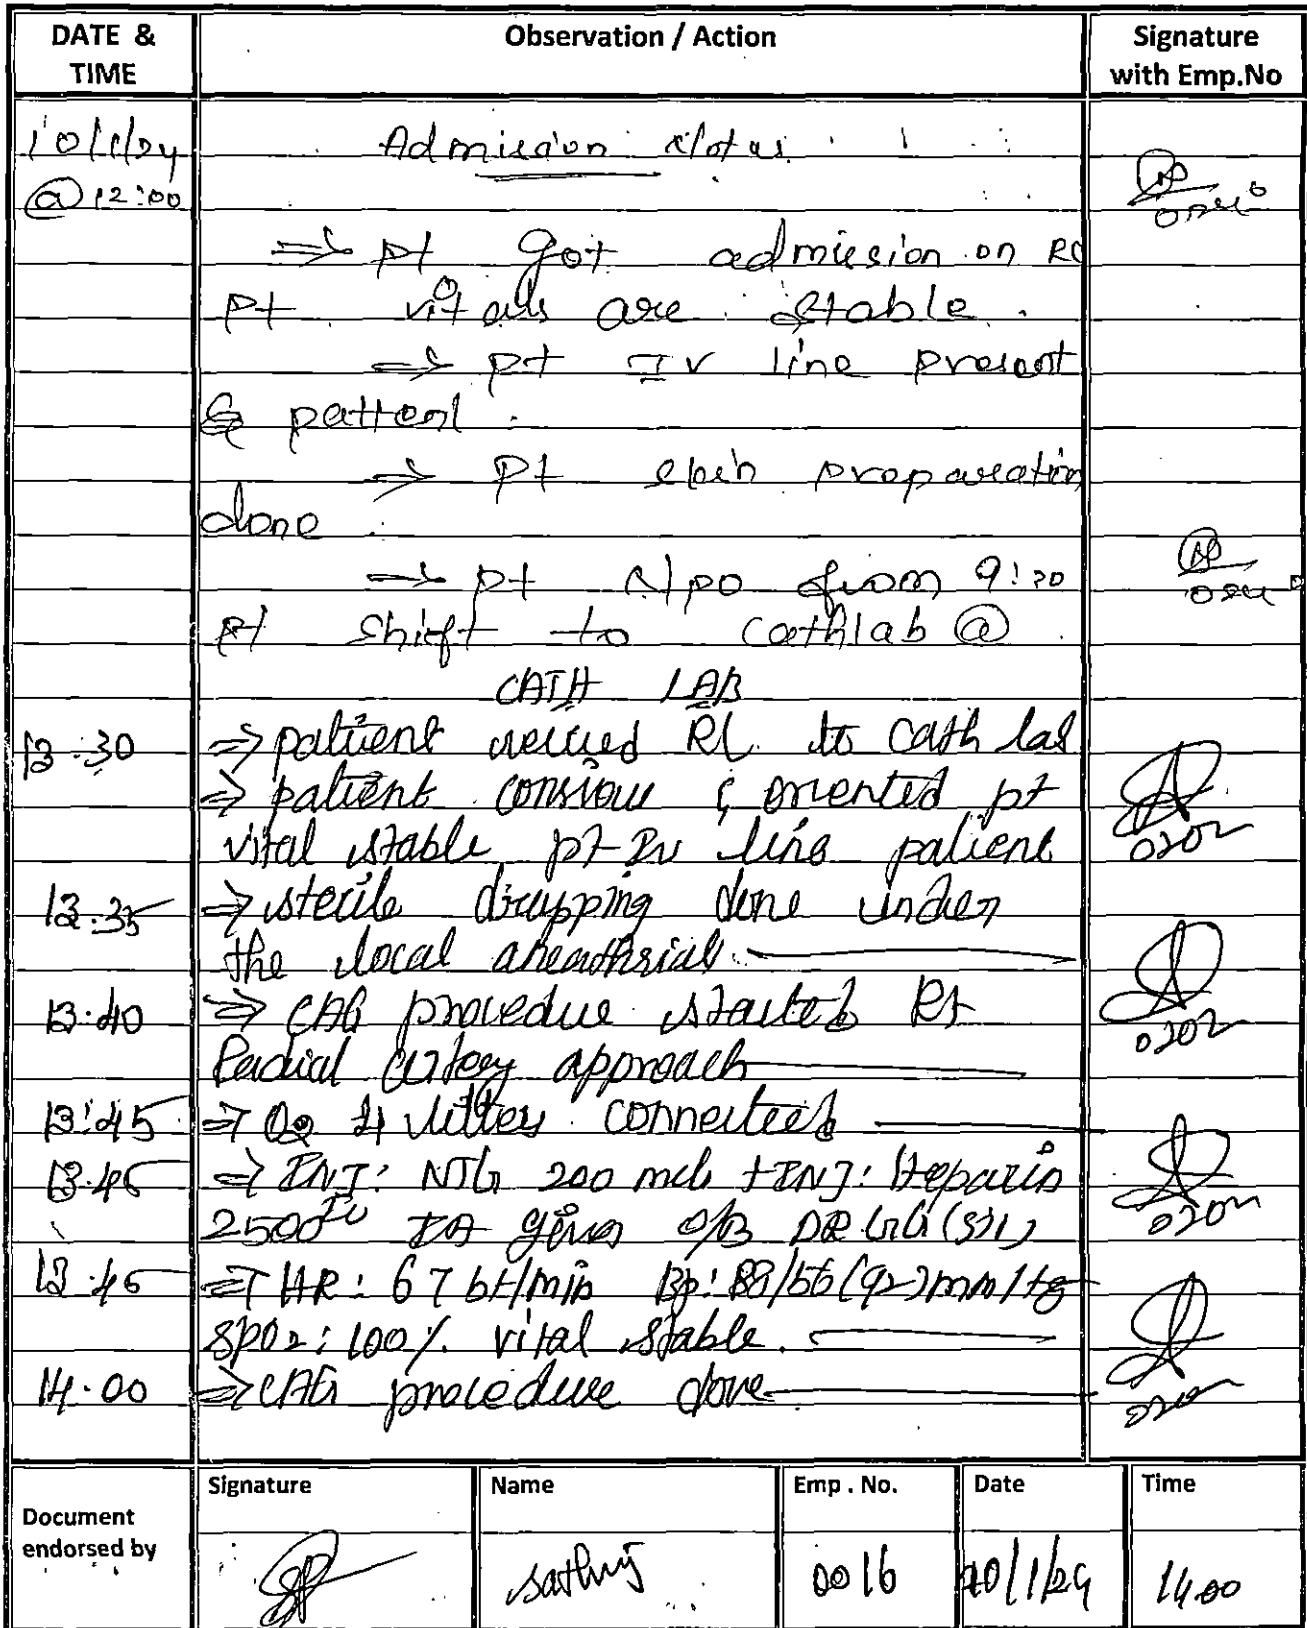 DATE & TIME
Observation / Action
Signature with Emp.No
10/1/24
Admission Notes
@ 12:00
⇒ pt got admission on RL
pt vitals are stable.
⇒ pt IV line present
& pattent.
⇒ pt skin preparation
done
⇒ pt Npo from 9:30
pt shift to cathlab @
CATH LAB
13:30 ⇒ patient RL to cath lab
⇒ patient consious & oriented pt
vital stable pt Iv line patient
13:35 ⇒ sterile drapping done under
the local
13:40 ⇒ CAG procedue started Rt
0202
Radial artery approach
13:45 ⇒ O2 4 litters connected
13:45 ⇒ INJ: NTG 200 mcg + INJ: Heparin
2500 IU IA given o/b DR
0202
13:45 ⇒ HR: 67 bt/min Bp: 88/56 (92) mm/Hg
SPO2: 100% vital stable.
14:00 ⇒ CAG procedure done
Document endorsed by
Signature
Name
Emp . No.
Date
Time
0016
14:00